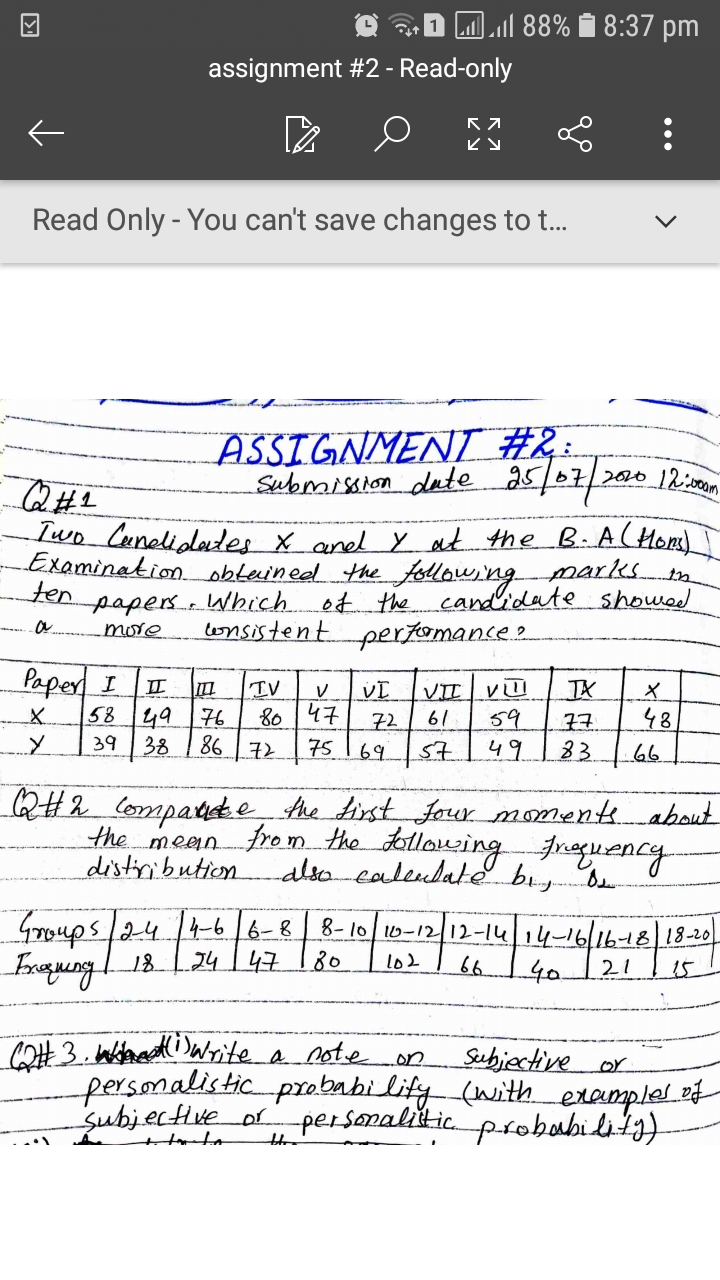 1 88% 8:37 pm
assignment #2 - Read-only
Read Only - You can't save changes to t...
ASSIGNMENT #2:
Submission date 25/07/2020 12:00am
Q#1
Two Candidates X and Y at the B.A(Hons)
Examination obtained the following marks in
ten papers. Which of the candidate showed
a more consistent performance?
Paper I II III IV V VI VII VIII IX X
X 58 49 76 80 47 72 61 59 77 48
Y 39 38 86 72 75 69 57 49 83 66
Q#2 compute the first four moments about
the mean from the following frequency
distribution also calculate b1, b2
Groups 2-4 4-6 6-8 8-10 10-12 12-14 14-16 16-18 18-20
Frequncy 18 24 47 80 102 66 40 21 15
Q#3. (i) Write a note on Subjective or
personalistic probability (with examples of
subjective or personalistic probability)